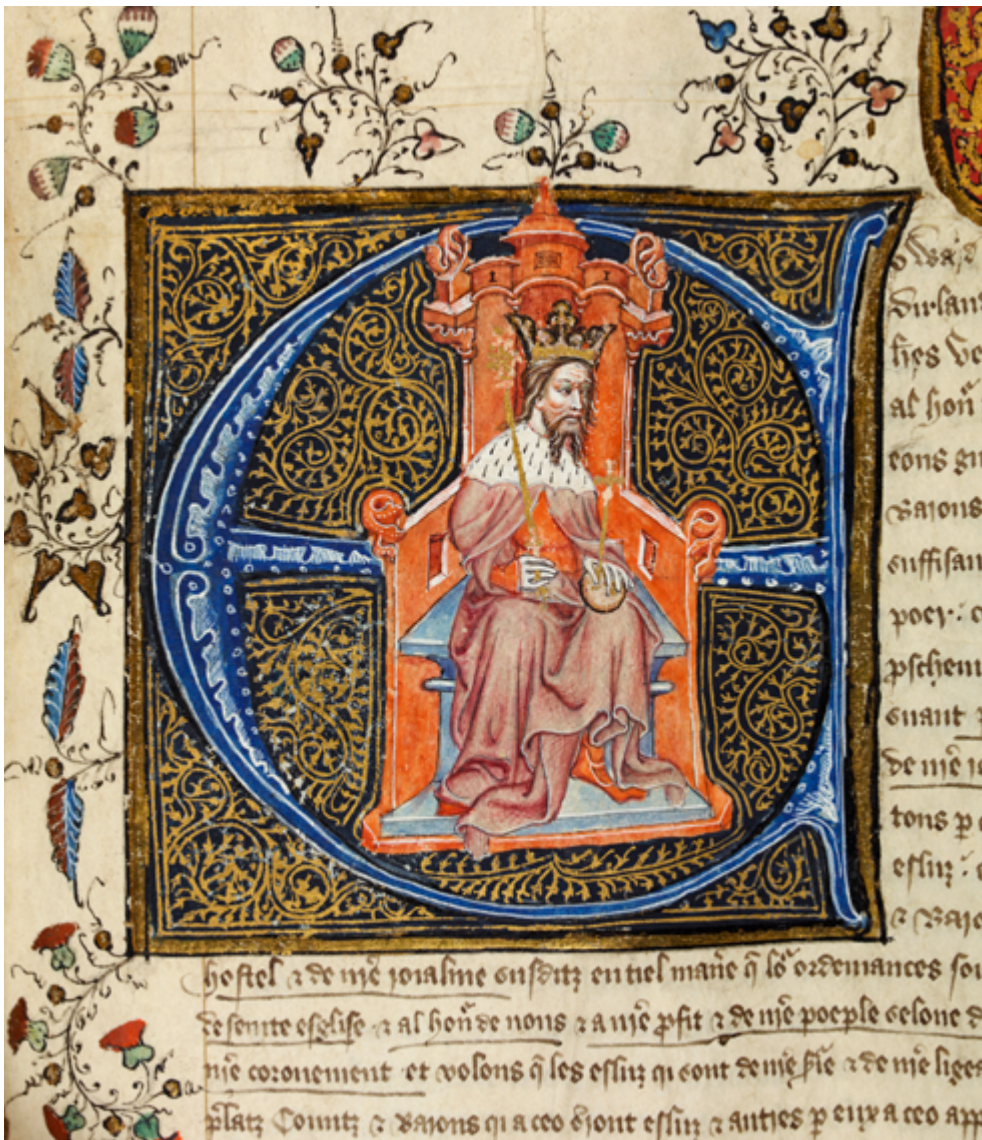 E
dward
dirlan
al hon̄
eons gn
Barons
suffisan
poer : e
suant ⁊
de nr̄e ro
tons p̱
eslir : e
⁊ Baro
hostel ⁊ de nr̄e roialme susditz en tiel man̄e q̄ lo᷑ ordenances soi
de seinte esglise ⁊ al hon̄ de nous ⁊ a nr̄e ꝓfit ⁊ de nr̄e poeple selonc d
nr̄e coronement et volons q̄ les esluz qi sont de nr̄e ⁊ de nr̄e liges
p̄latz Countz ⁊ Barons qi a ceo s̄ront esluz ⁊ autres p̱ eux a ceo app